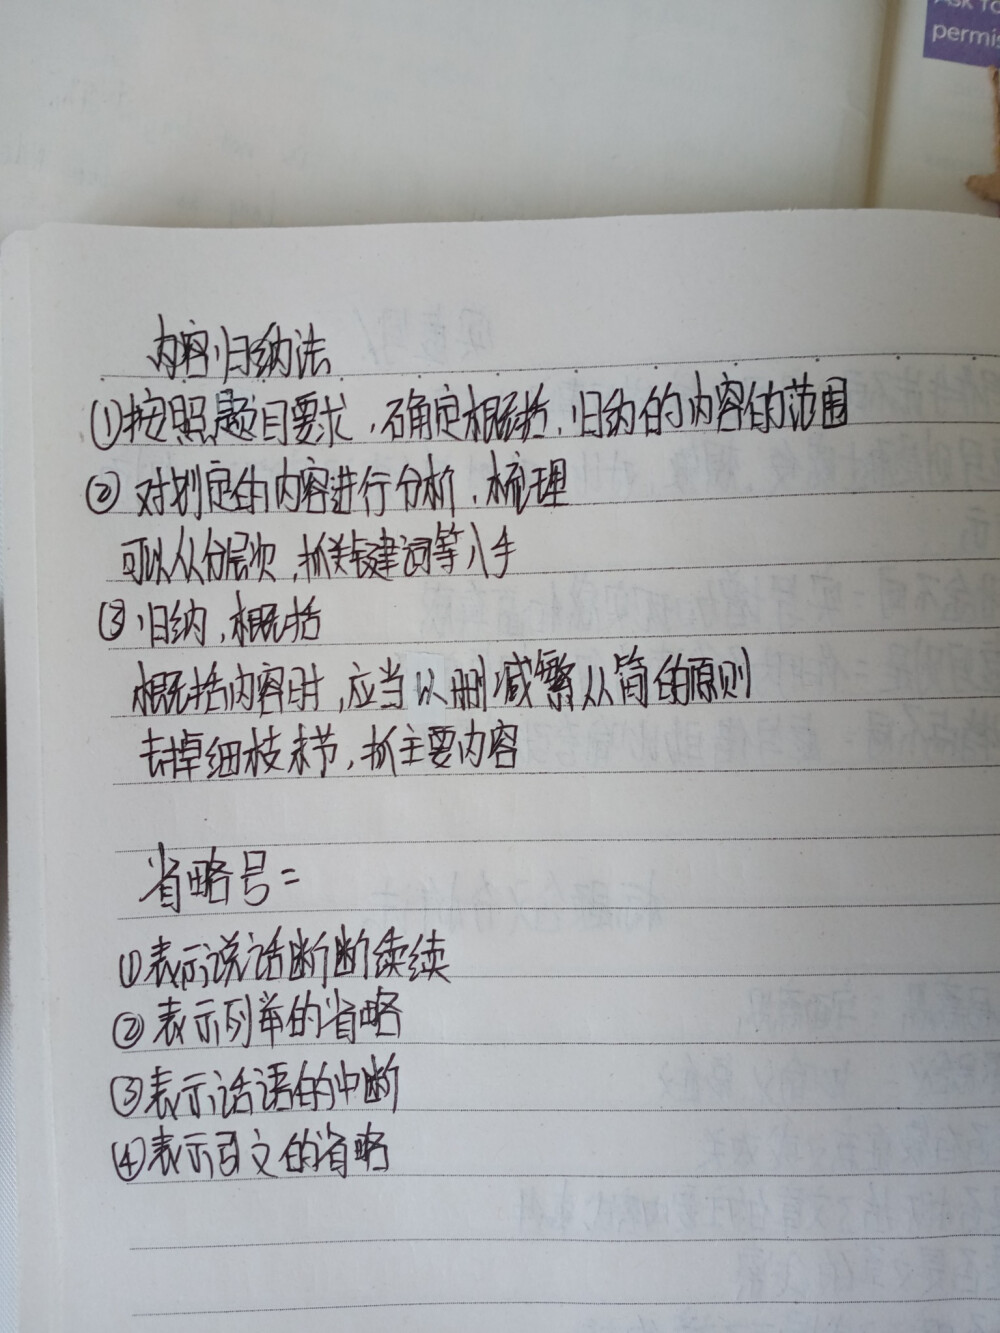 Ask To
permis
内容归纳法
①按照题目要求,确定概括、归纳的内容的范围
②对划定的内容进行分析、梳理
可以从分层次,抓关键词等入手
③归纳,概括
概括内容时,应当以删减繁从简的原则
去掉细枝末节,抓主要内容
省略号=
①表示说话断断续续
②表示列举的省略
③表示话语的中断
④表示引文的省略